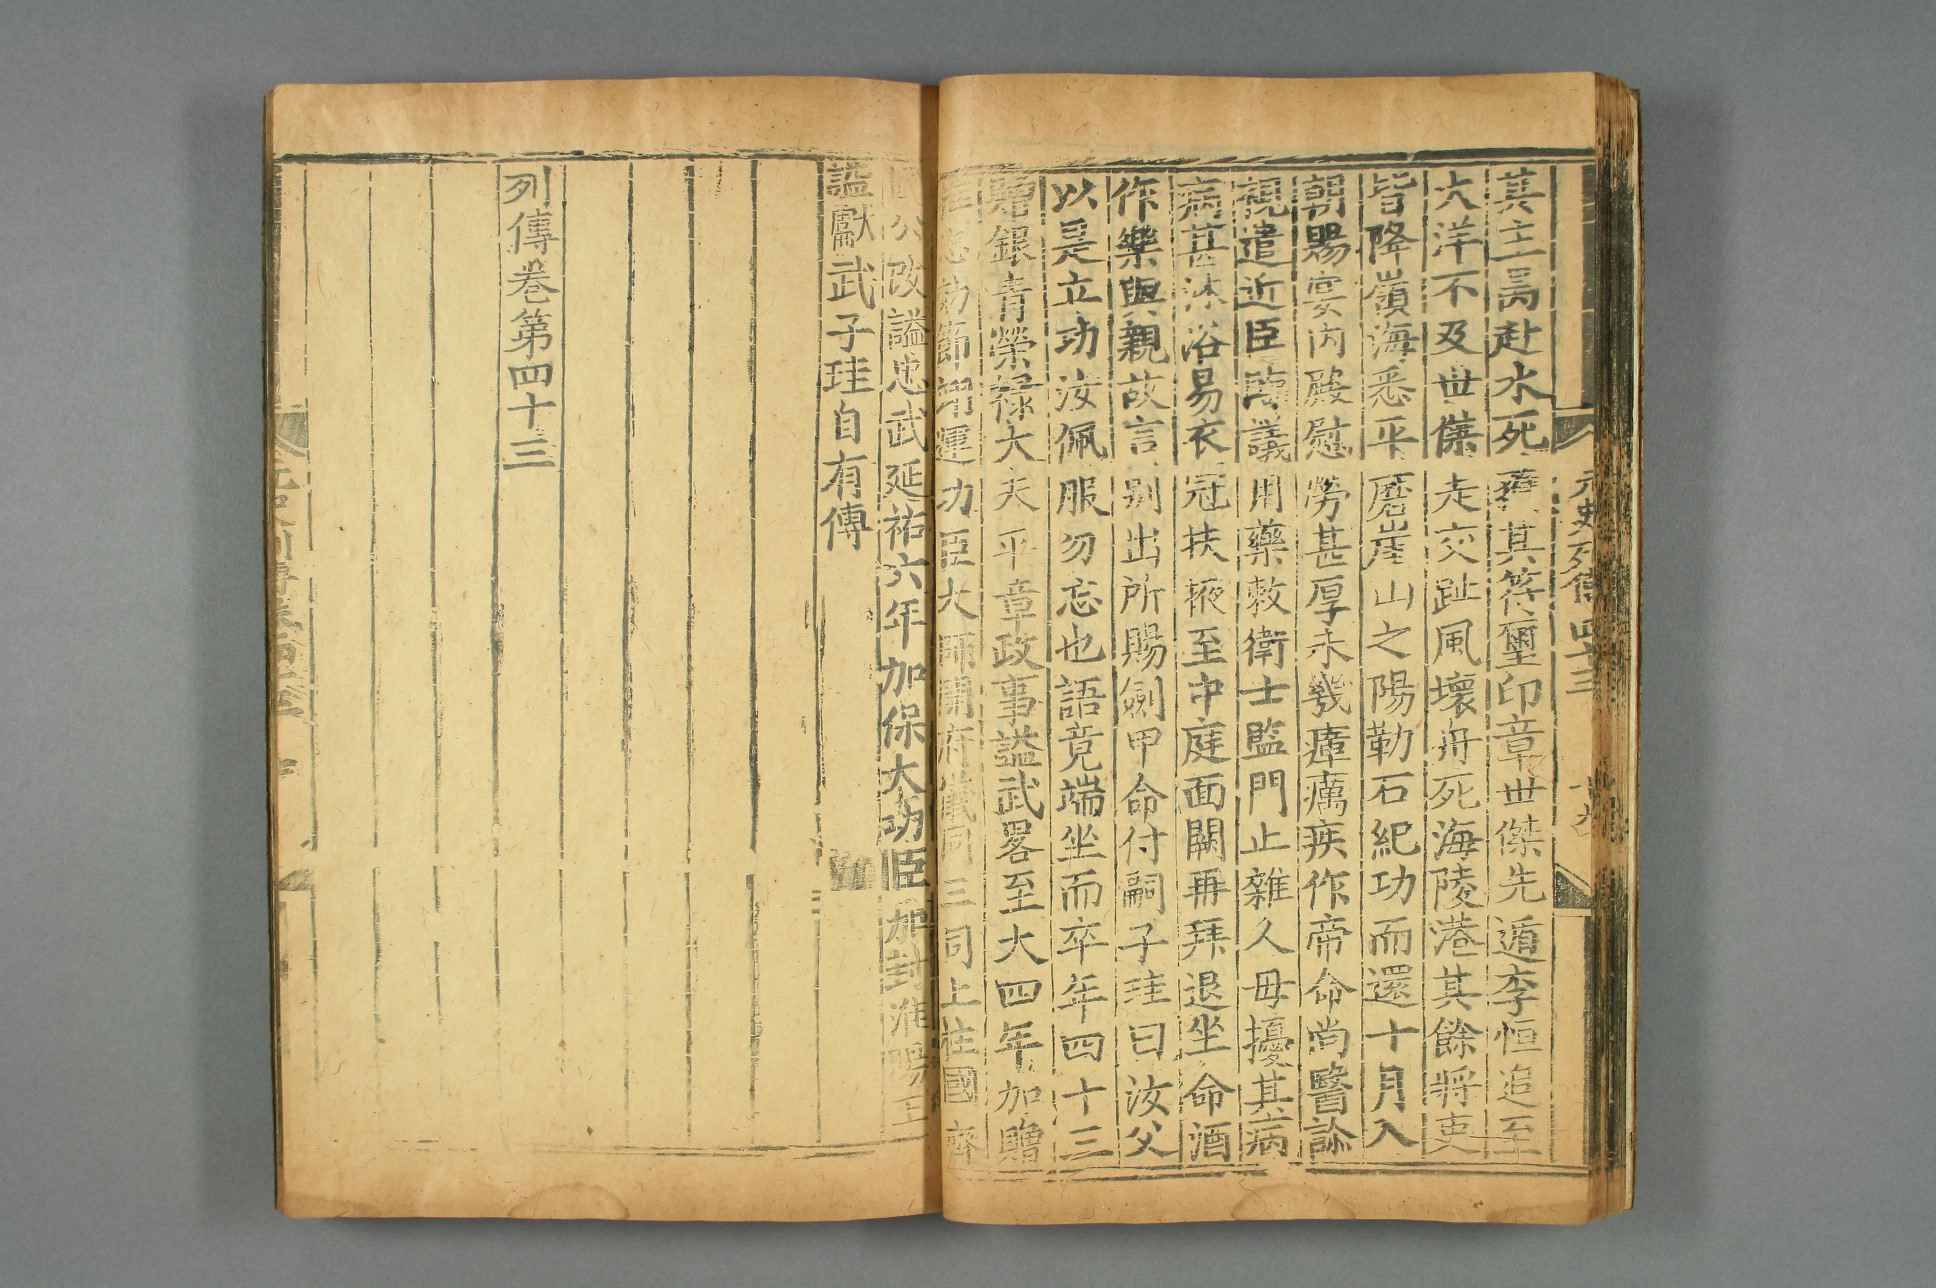 其主昺赴水死獲其符璽印章世傑先遁李恒追至
大洋不及世傑走交趾風壞舟死海陵港其餘將吏
皆降嶺海悉平磨崖山之陽勒石紀功而還十月入
朝賜宴內殿慰勞甚厚未幾瘴癘疾作帝命尚醫診
視遣近臣臨議用藥敕衛士監門止雜久毋擾其病
病甚沐浴易衣冠扶掖至中庭面闕再拜退坐命酒
作樂與親故言別出所賜劍甲命付嗣子珪曰汝父
以是立功汝佩服勿忘也語竟端坐而卒年四十三
贈銀青榮祿大夫平章政事諡武畧至大四年加贈
推忠効節翊運功臣太師開府儀同三司上柱國齊
國公改諡忠武延祐六年加保大功臣加封淮陽王
諡獻武子珪自有傳
列傳卷第四十三
元史列傳四十三